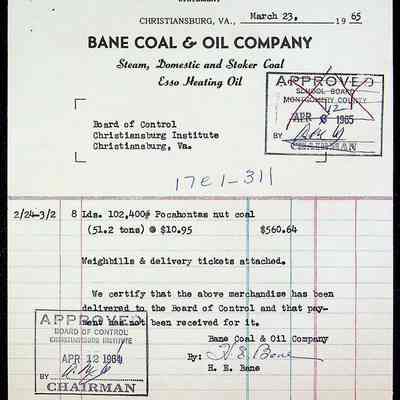 STATEMENT
CHRISTIANSBURG, VA., March 23, 1965
BANE COAL & OIL COMPANY
Steam, Domestic and Stoker Coal
Esso Heating Oil
APPROVED
SCHOOL BOARD
MONTGOMERY COUNTY
APR 1965
BY
CHAIRMAN
Board of Control
Christiansburg Institute
Christiansburg, Va.
17e1-311
2/24-3/2 8 Lds. 102,400# Pocahontas nut coal
(51.2 tons) @ $10.95 $560.64
Weighbills & delivery tickets attached.
We certify that the above merchandise has been
delivered to the Board of Control and that pay-
ment has not been received for it.
Bane Coal & Oil Company
By: H. E. Bane
H. E. Bane
APPROVED
BOARD OF CONTROL
CHRISTIANSBURG INSTITUTE
APR 12 1964
BY
CHAIRMAN